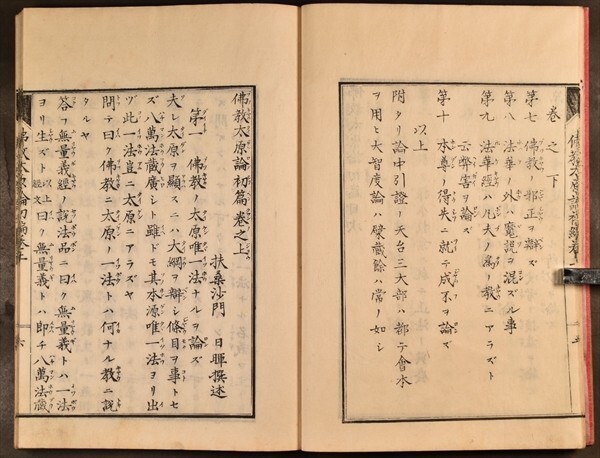 卷之下
第七 佛教ノ邪正ヲ辯ズ
第八 法華ノ外ハ魔説ヲ混ズル事
第九 法華經ハ凡夫ノ爲ノ教ニアラズト
云弊害ヲ論ズ
第十 本尊ノ得失ニ就テ成不ヲ論ズ
以上
附タリ論中引證ノ天台三大部ハ都テ會本
ヲ用ヒ大智度論ハ檗藏餘ハ常ノ如シ
佛教太原論初篇卷之上
扶桑沙門 日暉撰述
第一 佛教ノ太原唯一法ナルヲ論ズ
夫レ太原ヲ顯スニハ大綱ヲ辯シ條目ヲ事トセ
ズ八萬法藏廣シト雖ドモ其本源唯一法ヨリ出
ヅ此一法豈ニ太原ニアラズヤ
問テ曰ク佛教ニ太原ノ一法トハ何ナル教ニ説
タルヤ
答フ無量義經ノ説法品ニ曰ク無量義トハ一法
ヨリ生ズト以上經文曰ク無量義トハ即チ八萬法藏